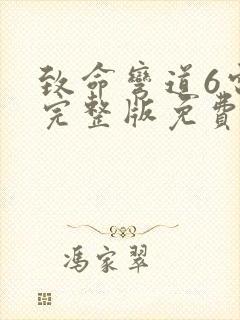 致命弯道6
完整版免費
馮家翠